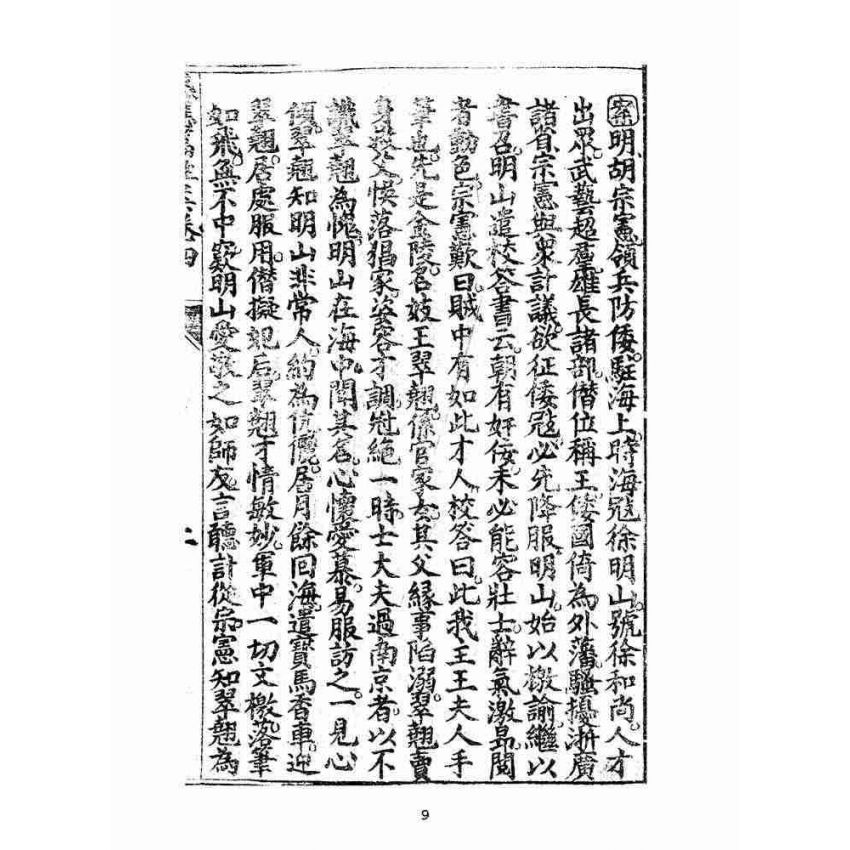 案明胡宗憲領兵防倭駐海上時海冦徐明山號徐和尚人才
出眾武藝超羣雄長諸部僭位稱王倭國倚為外藩騷擾浙廣
諸省宗憲與衆計議欲征倭冦必先降服明山始以檄諭繼以
書召明山遣校答書云朝有奸佞未必能容壯士辭氣激昂閱
者動色宗憲歎曰賊中有如此才人校答曰此我王王夫人手
筆也先是金陵名妓王翠翹係官家女其父縁事陷溺翠翹賣
身父悞落猖家姿容才調冠絶一時士大夫過南京者以不
識翠翹為愧明山在海中聞其名心懷愛慕易服訪之一見心
傾翠翹知明山非常人約為伉儷居月餘回海遣寶馬香車迎
翠翹居處服用僭擬妃后翠翹才情敏妙軍中一切文檄落筆
如飛無不中窾明山愛敬之如師友言聽計從宗憲知翠翹為
卷四
9